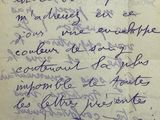 m'adressez en ce
jour une enveloppe
couleur de soie
contenant la plus
impossible de toutes
les lettres présentes